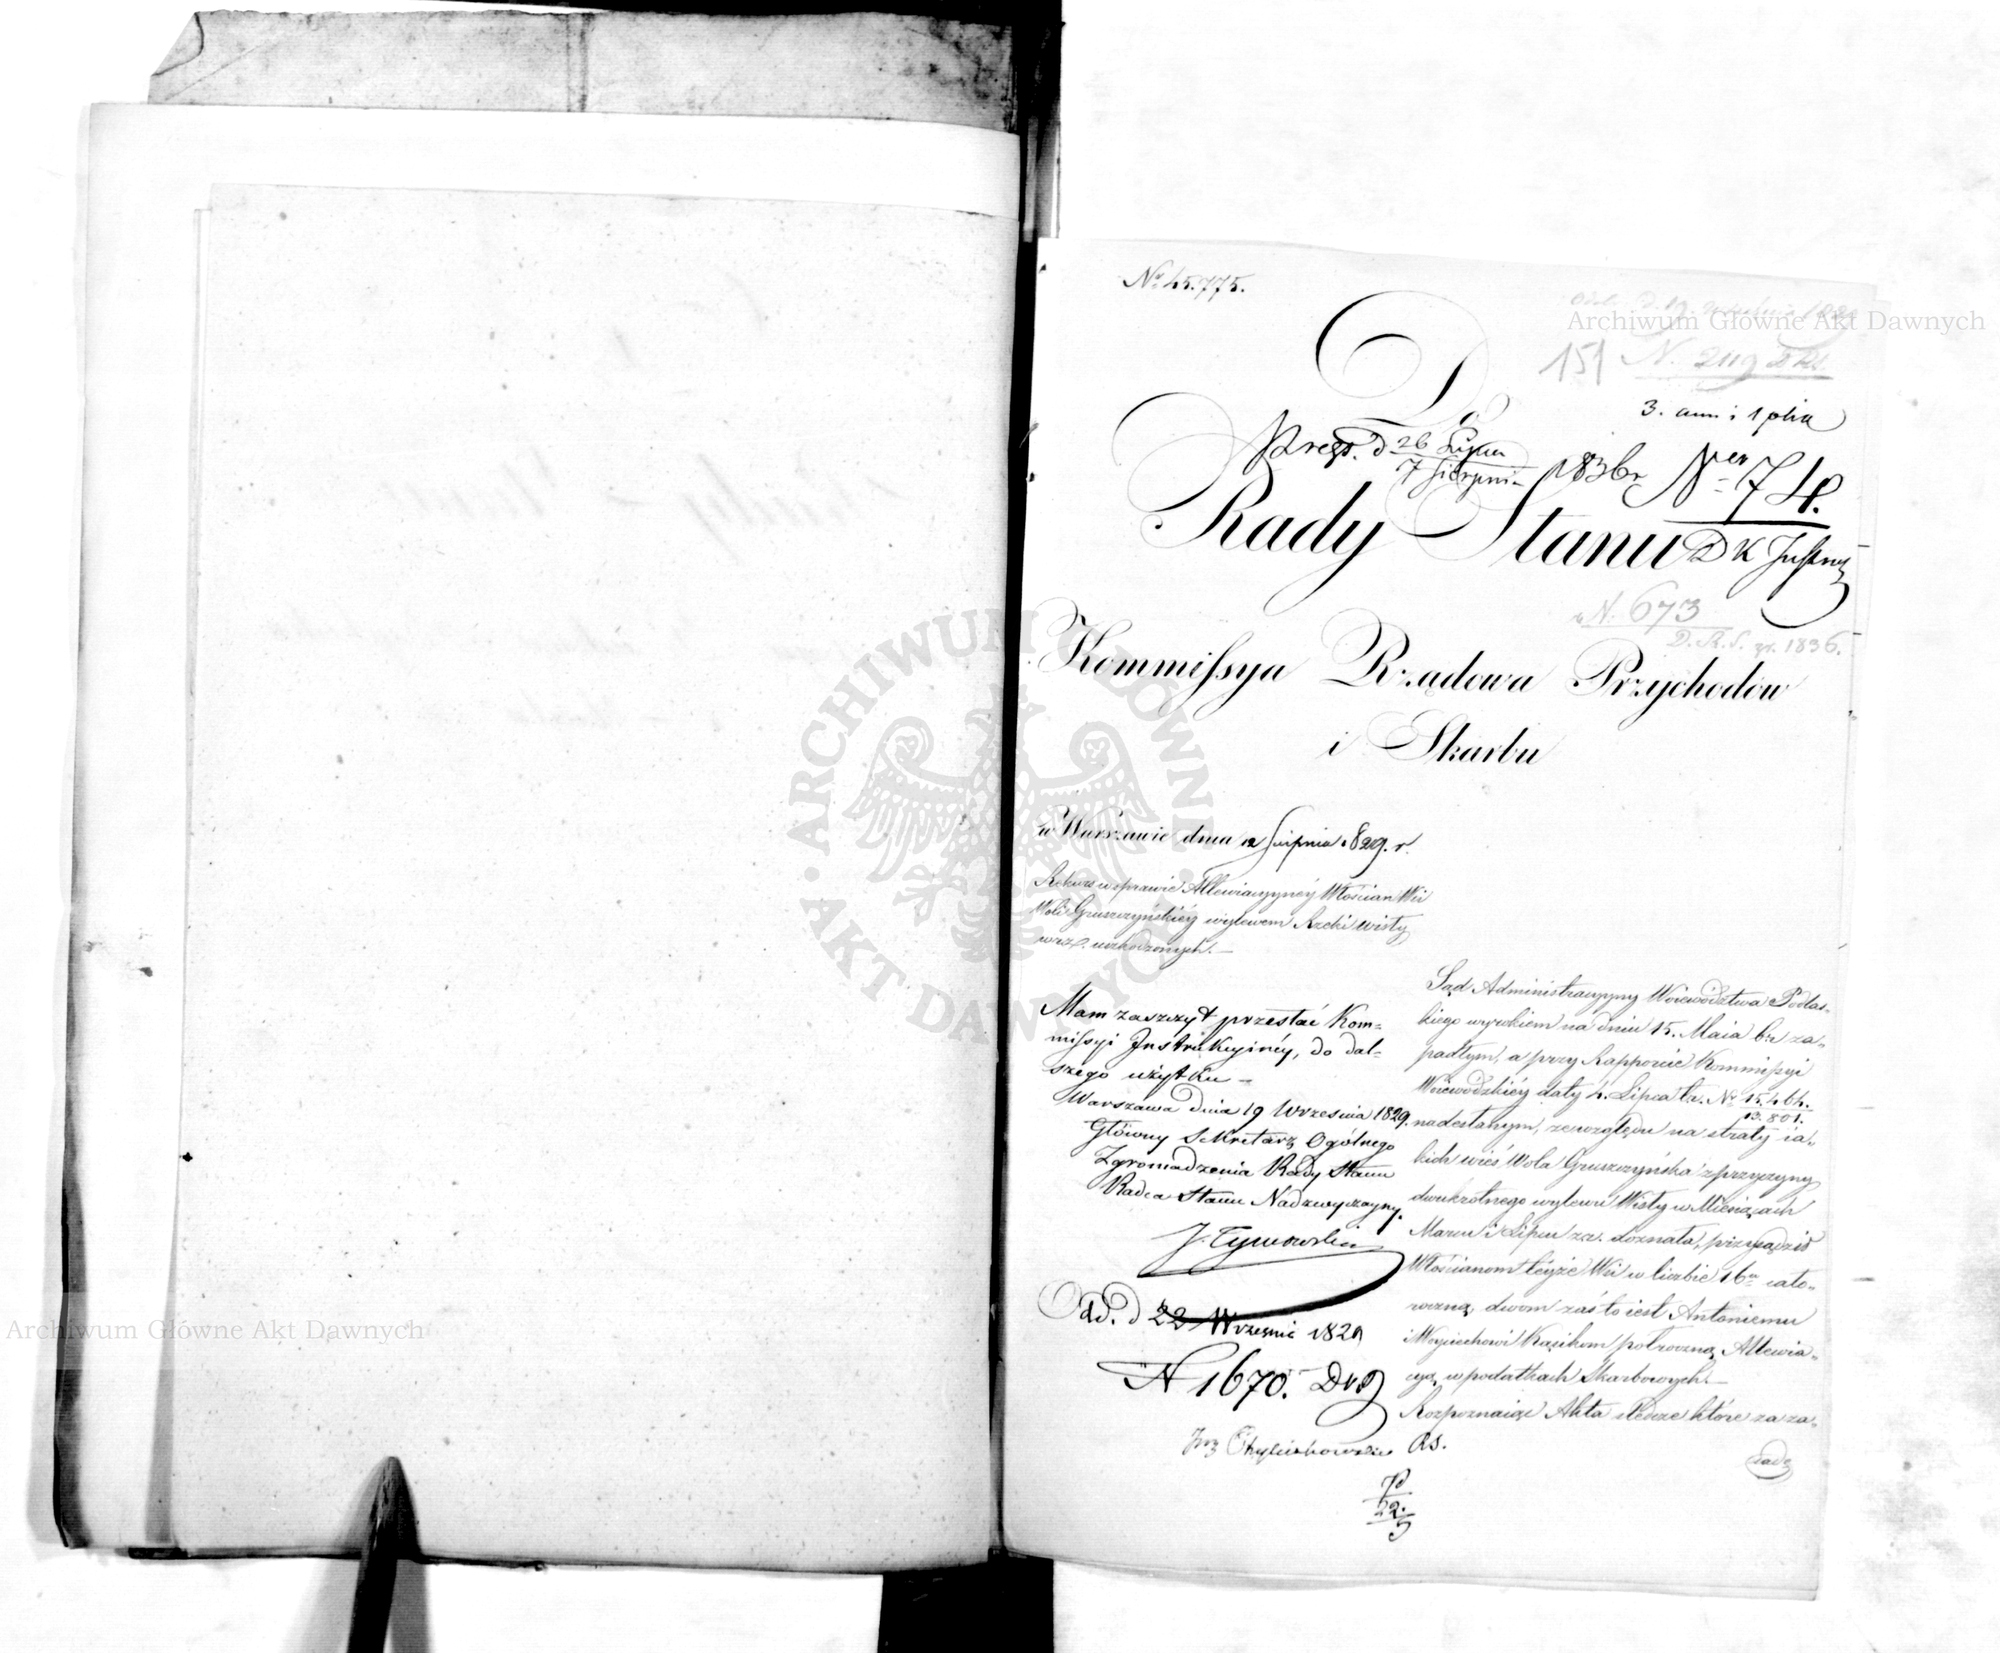 Nr 45.775.
Archiwum Główne Akt Dawnych
151 N. 2119
3. ann: i 1 plik
Do
Prez. d 26 Lipca
7 Sierpnia 1836 r. Ner 74.
Rady Stanu
D K
N. 673
1836.
Kommissya Rządowa Przychodów
i Skarbu
w Warszawie dnia 12 Sierpnia 1829. r.
Rekurs w sprawie Allewiacyyney Włościan Wsi
Woli Gruszczyńskiey wylewem Rzeki Wisły
uszkodzonych. —
Mam zaszczyt przesłać Kom=
missyi Instrukcyiney, do dal=
szego użytku —
Warszawa dnia 19 Wrzesnia 1829.
Główny Sekretarz Ogólnego
Zgromadzenia Rady Stanu
Radca Stanu Nadzwyczayny.
J. Tymowski
Od. d 22 Wrzesnia 1829
N 1670.
Sąd Administracyyny Woiewództwa Podlas=
kiego wyrokiem na dniu 15. Maia br za=
padłym, a przy Rapporcie Kommissyi
Woiewodzkiéy daty 4. Lipca t.r. Nr 15.464.
13.801.
nadesłanym, ze względu na straty ia=
kich wieś Wola Gruszczyńska z przyczyny
dwukrotnego wylewu Wisły w Miesiącach
Marcu i Lipcu z.r. doznała, przysądził
Włościanom téyże Wsi w liczbie 16u cało=
roczną, dwom zaś to iest Antoniemu
i Woyciechowi Kąsikom półroczną Allewia=
cyą w podatkach Skarbowych. —
Rozpoznaiąc Akta śledcze które za za=
RS.
sadę
22.
5
Archiwum Główne Akt Dawnych
ARCHIWUM GŁÓWNE AKT DAWNYCH